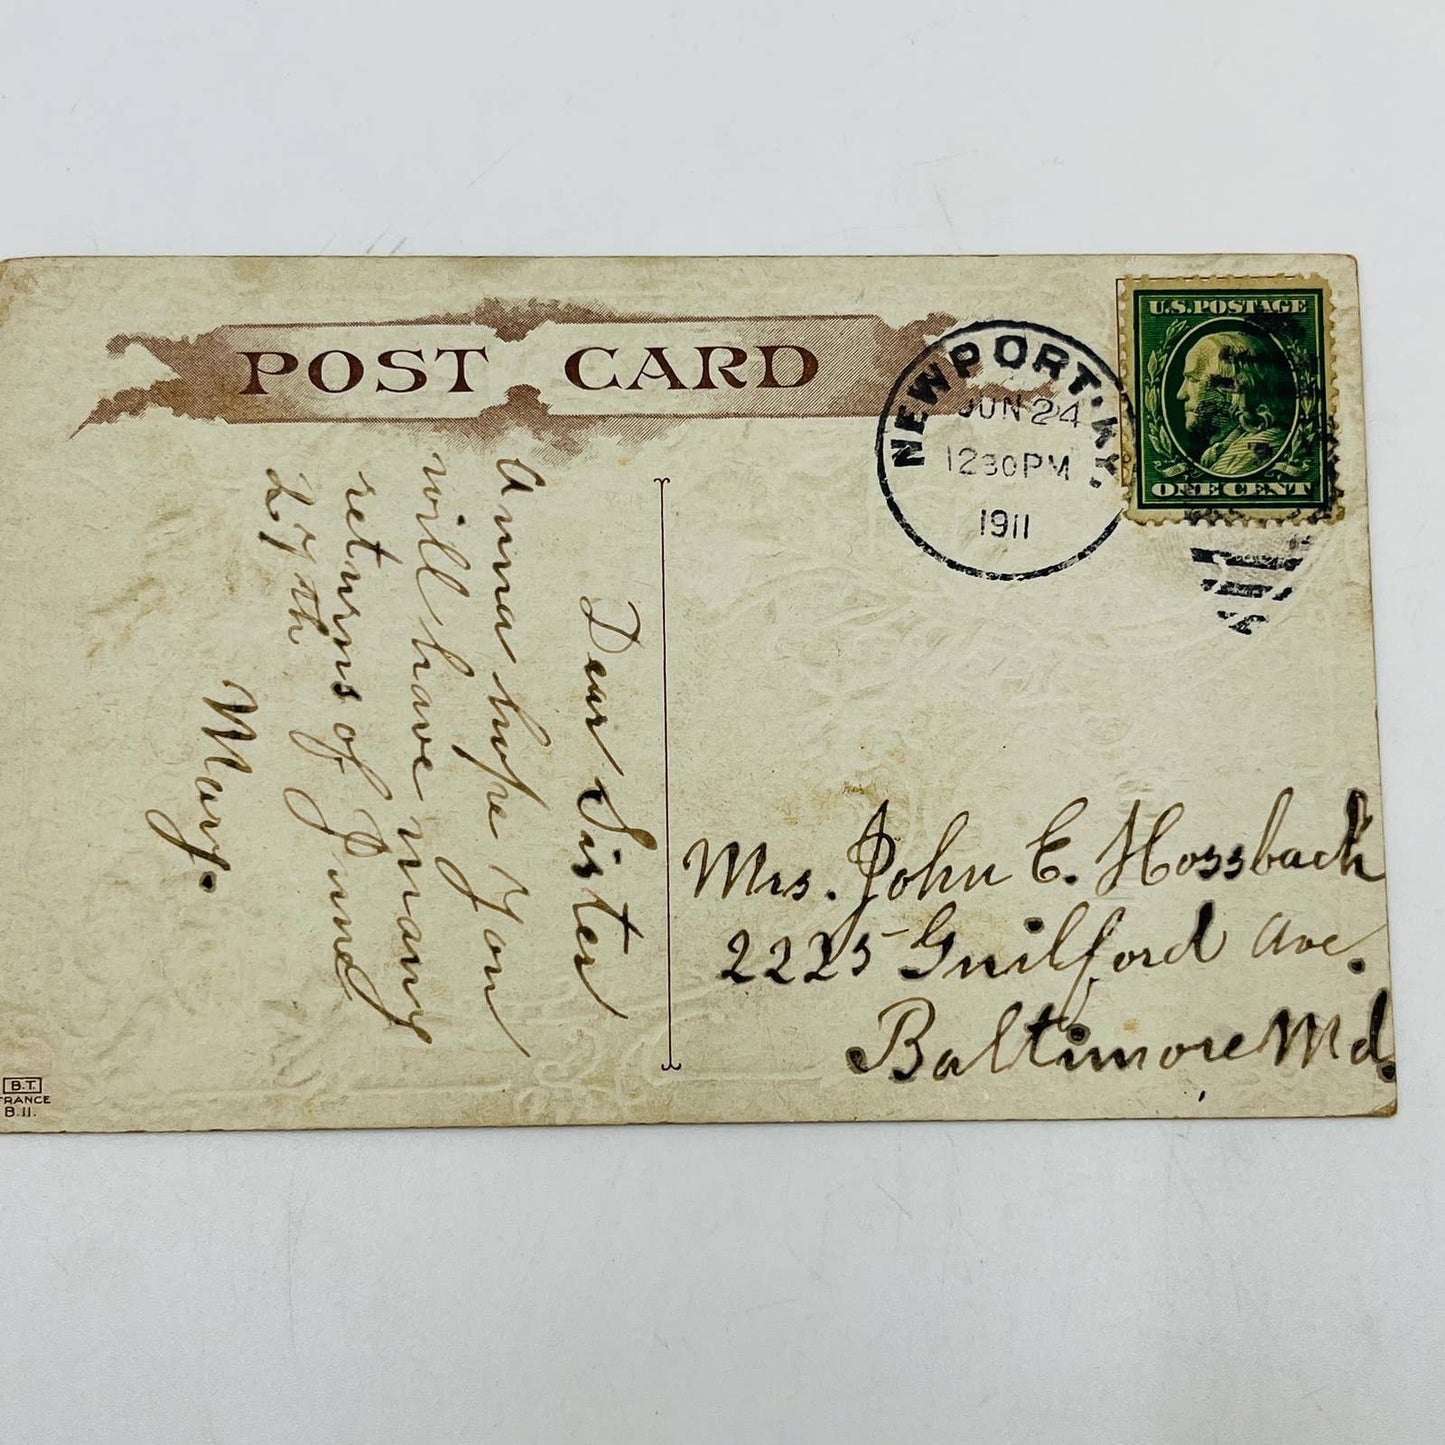 POST CARD
NEWPORT, KY.
JUN 24
1230PM
1911
U.S. POSTAGE
ONE CENT
Dear Sister
Anna hope you
will have many
returns of June
27th
Mary.
Mrs. John C. Hossbach
2225 Guilford Ave.
Baltimore Md.
B.T.
FRANCE
B.11.